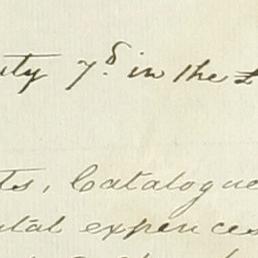 uty 7d. in the £
ts, Catalogue
ntal expences